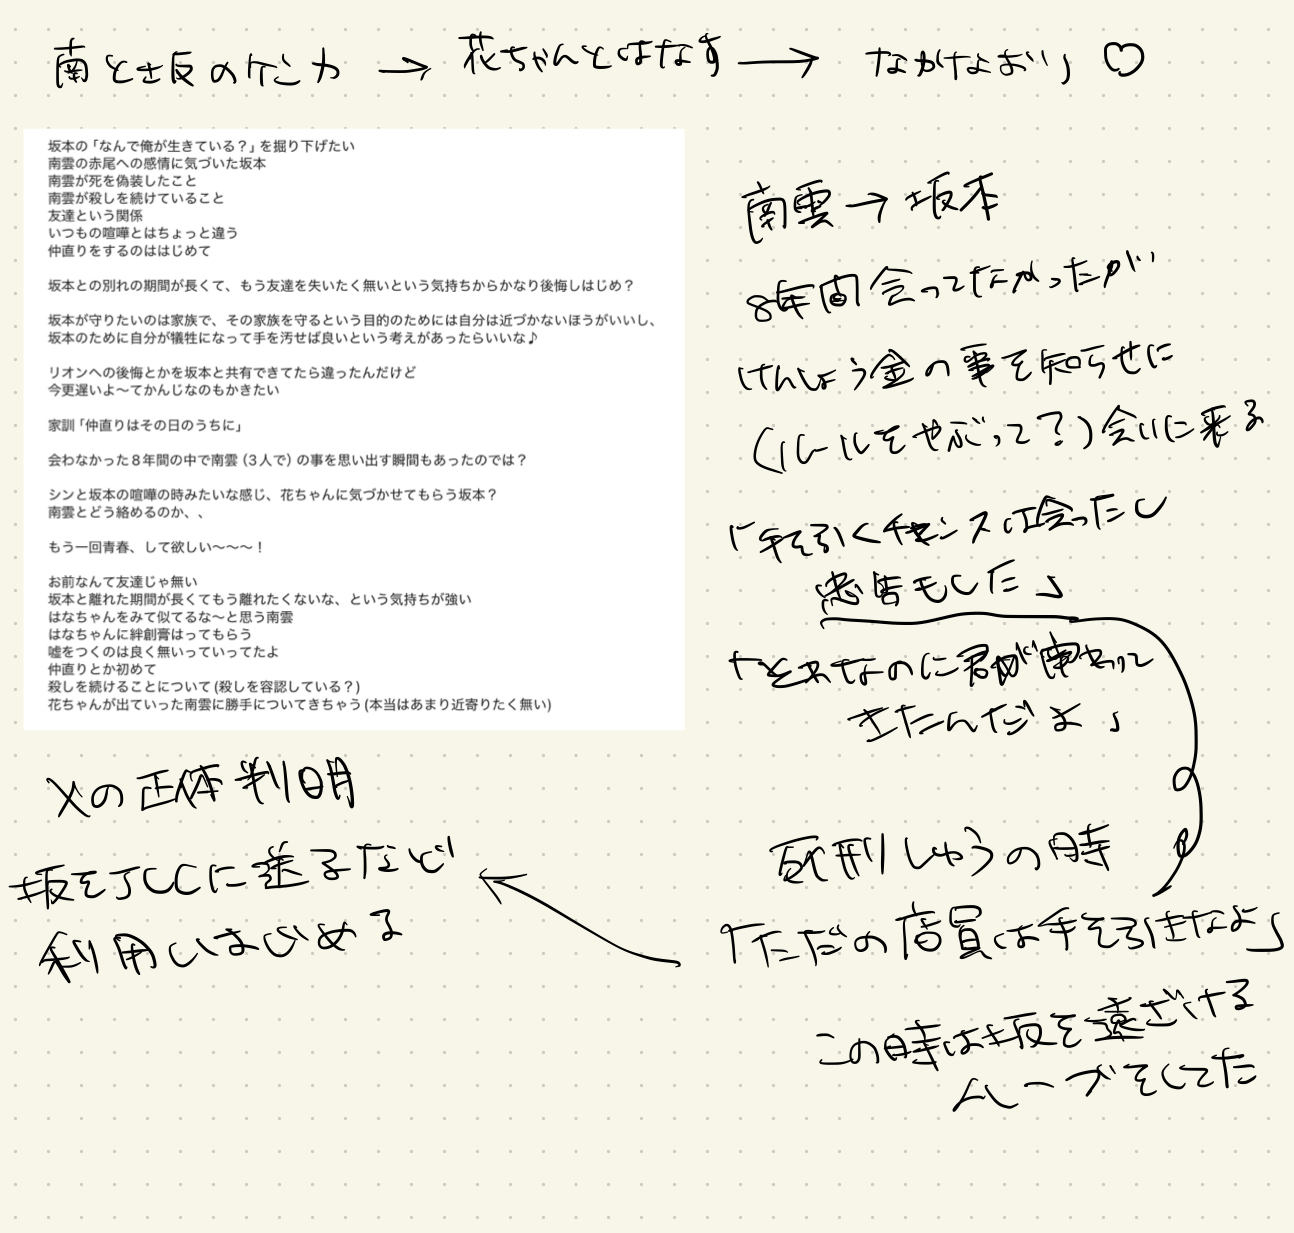 南と坂のケンカ → 花ちゃんとはなす → なかなおり♡
坂本の「なんで俺が生きている？」を掘り下げたい
南雲の赤尾への感情に気づいた坂本
南雲が死を偽装したこと
南雲が殺しを続けていること
友達という関係
いつもの喧嘩とはちょっと違う
仲直りをするのははじめて
坂本との別れの期間が長くて、もう友達を失いたく無いという気持ちからかなり後悔しはじめ？
坂本が守りたいのは家族で、その家族を守るという目的のためには自分は近づかないほうがいいし、
坂本のために自分が犠牲になって手を汚せば良いという考えがあったらいいな♪
リオンへの後悔とかを坂本と共有できてたら違ったんだけど
今更遅いよ〜てかんじなのもかきたい
家訓「仲直りはその日のうちに」
会わなかった８年間の中で南雲（３人で）の事を思い出す瞬間もあったのでは？
シンと坂本の喧嘩の時みたいな感じ、花ちゃんに気づかせてもらう坂本？
南雲とどう絡めるのか、、
もう一回青春、して欲しい〜〜〜！
お前なんて友達じゃ無い
坂本と離れた期間が長くてもう離れたくないな、という気持ちが強い
はなちゃんをみて似てるな〜と思う南雲
はなちゃんに絆創膏はってもらう
嘘をつくのは良く無いっていってたよ
仲直りとか初めて
殺しを続けることについて(殺しを容認している？)
花ちゃんが出ていった南雲に勝手についてきちゃう(本当はあまり近寄りたく無い)
南雲→坂本
8年間会ってなかったが
けんしょう金の事を知らせに
(ルールをやぶって？)会いに来る
「手を引くチャンスは会ったし
忠告もした」
「それなのに君が関わって
きたんだよ」
死刑しゅうの時
「ただの店員は手を引きなよ」
この時は坂を遠ざける
ムーブをしてた
Xの正体判明
坂をJCCに送るなど
利用しはじめる